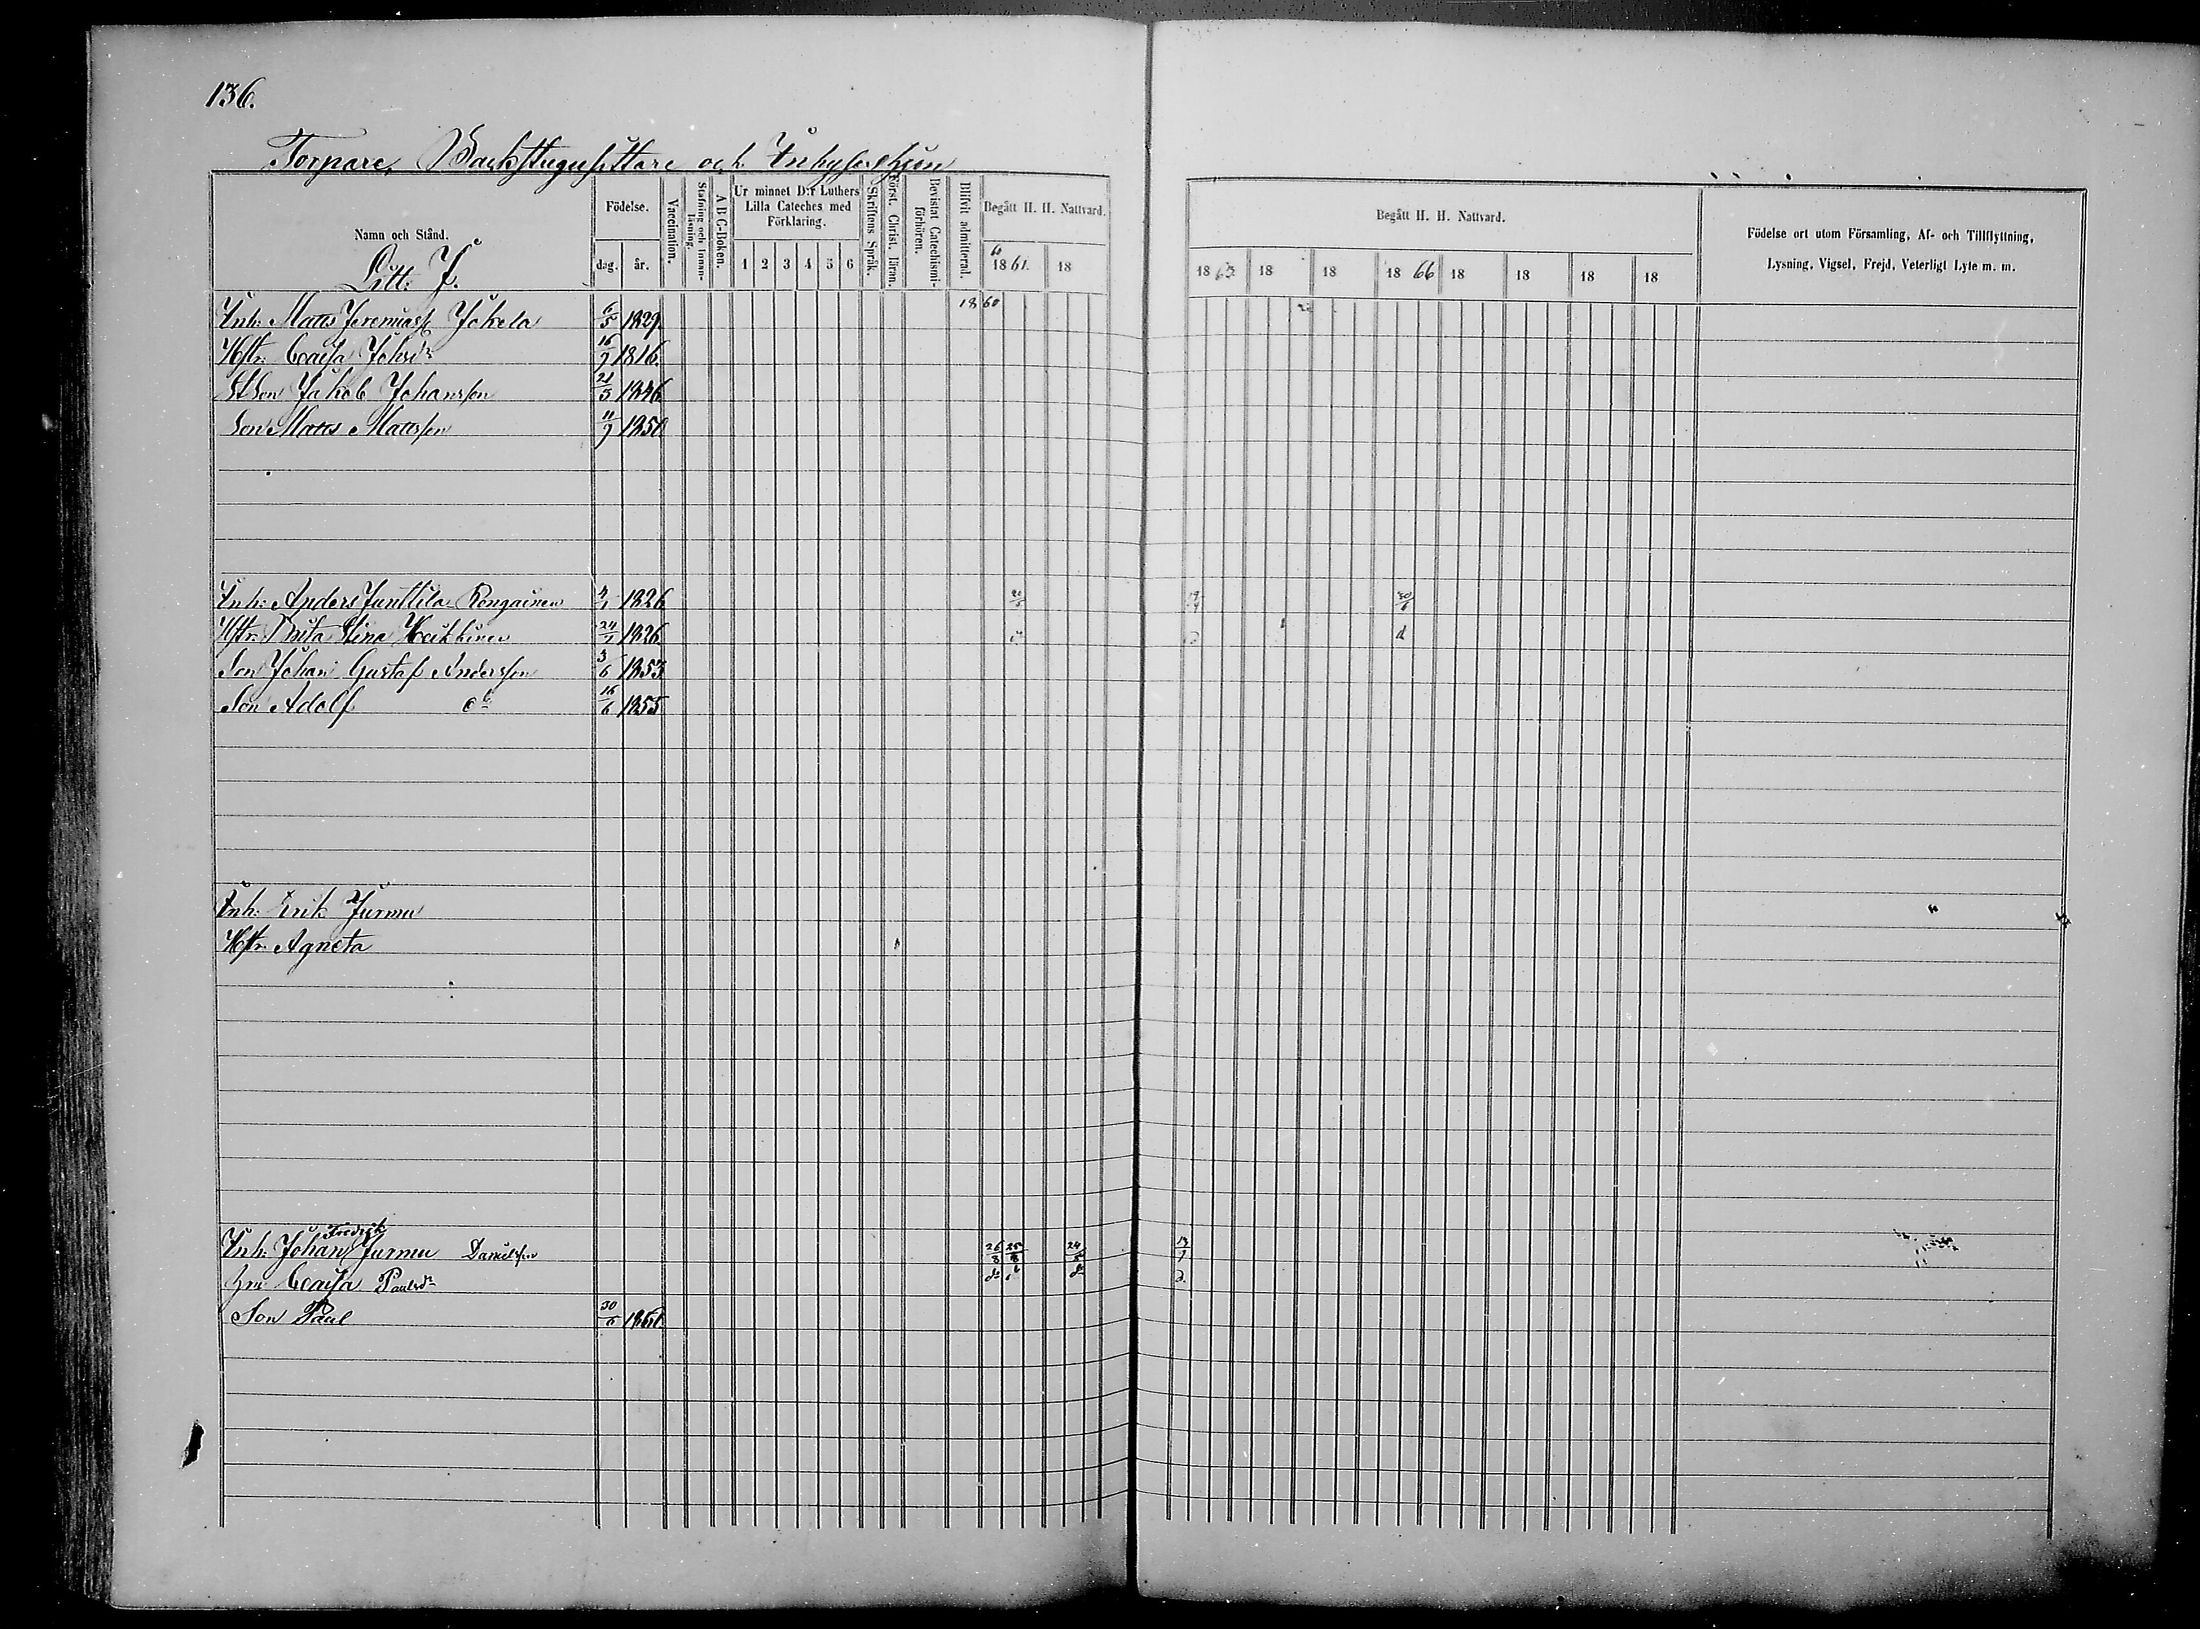 136.
Torpare, Backstugusittare och Inhyseshjon
Namn och Stånd.
Litt: J.
Födelse.
dag. år.
Vaccination.
Stafning och Innanläsning.
A B C-Boken.
Ur minnet D:r Luthers Lilla Cateches med Förklaring.
1 2 3 4 5 6
Skriftens Språk.
Först. Christ. läran.
Bevistat Catechismiförhören.
Blifvit admitterad.
Begått H. H. Nattvard.
60
18 61. 18
Begått H. H. Nattvard.
18 63 18 18 18 66 18 18 18 18
Födelse ort utom Församling, Af- och Tillflyttning,
Lysning, Vigsel, Frejd, Veterligt Lyte m. m.
Inh: Matts Jeremiass Jokela 6/5 1829. 1860
Hstr: Caisa Johsdr 16/9 1816.
StSon Jakob Johansson 21/3 1846
Son Matts Mattsson 11/9 1850
Inh: Anders Junttila Rongainen 4/1 1826 30/6
Hstr: Brita Stina Heikkinen 24/7 1826 d
Son Johan Gustaf Andersson 3/6 1853
Son Adolf do 16/6 1855
Inh: Erik Jurmu
Hstr: Agneta
Fredrik
Inh: Johan Jurmu Danielsson 26/8 25/8 24/5 13/7
Caisa Paulsdr do do do d.
Son Paul 30/6 1861.